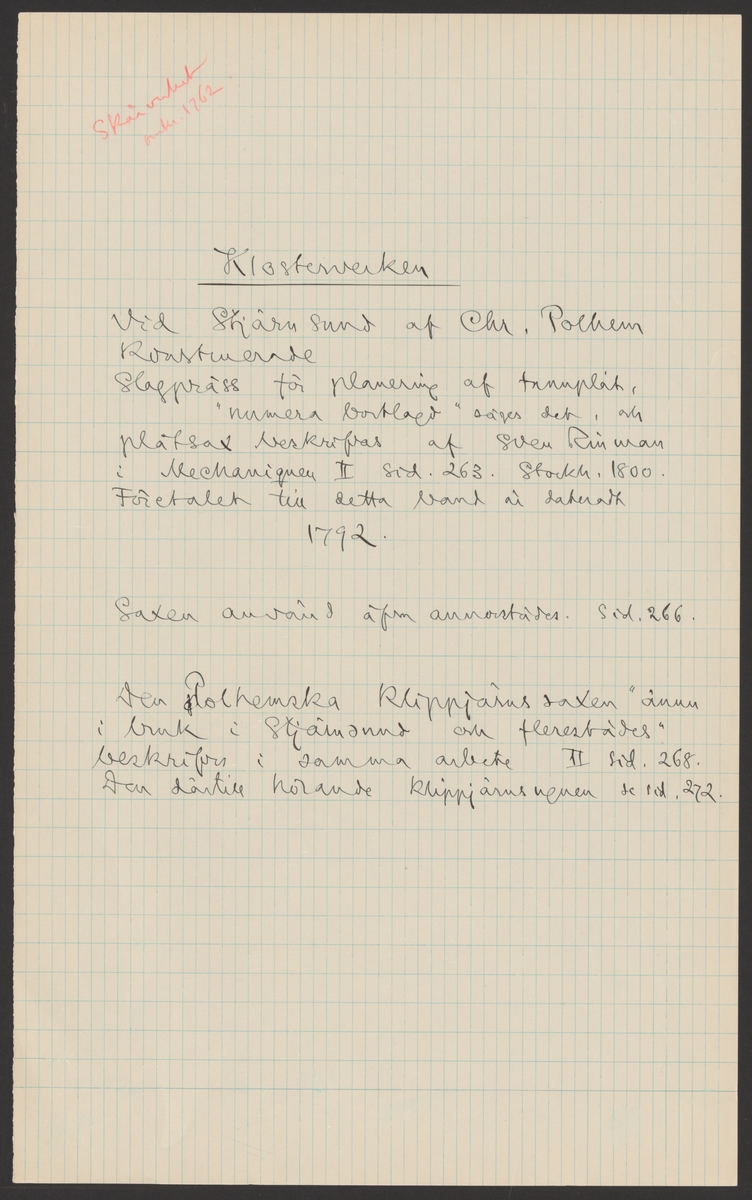 Skärverket
1762.
Klosterverken
Vid Stjärnsund af Chr. Polhem
Konstruerade
Slagpräss för planering af tunnplåt,
"numera bortlagd" säges det, och
plåtsax beskrifvas af Sven Rinman
i Mechaniquen II Sid. 263. Stockh. 1800.
Företalet till detta band är dateradt
1792.
Saxen använd äfven annorstädes. Sid. 266.
Den Polhemska Klippjärnssaxen "ännu
i bruk i Stjärnsund och flerestädes"
beskrifves i samma arbete II Sid. 268.
Den därtill hörande Klippjärnsugnen se sid. 272.